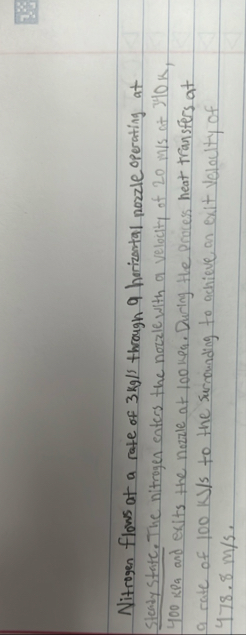 Nitrogen flows at a rate of 3 kg/s through a horizontal nozzle operating at
steady state. The nitrogen enters the nozzle with a velocity of 20 m/s at 340 K,
400 KPa and exits the nozzle at 100 KPa. During the process heat transfers at
a rate of 100 KJ/s to the surrounding to achieve an exit velocity of
478.8 m/s.